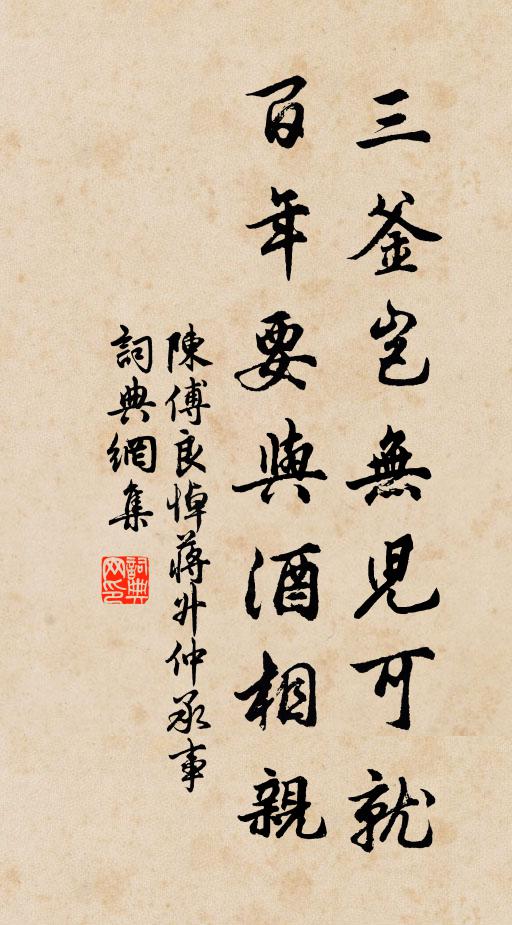 三釜豈無兒可就
百年要與酒相親
陳傅良悼蔣升仲承事
詞典網集
詞典网印